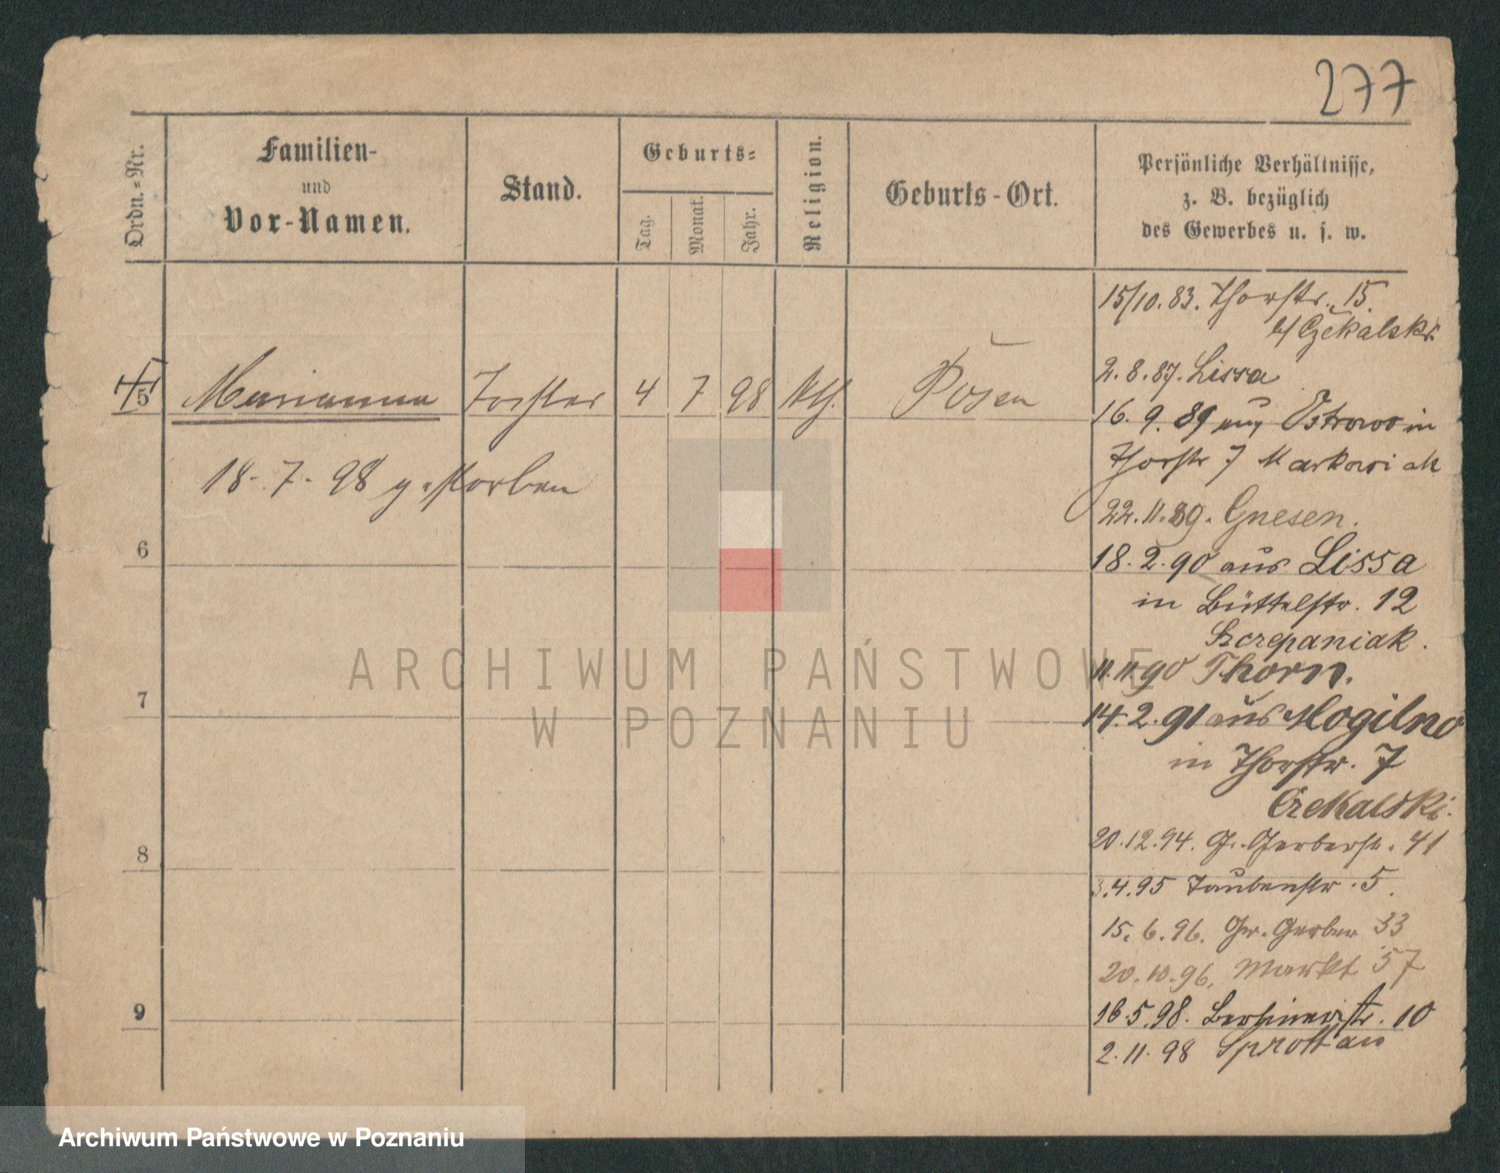 277
Ordn.-Nr.
Familien-
und
Vor-Namen.
Stand.
Geburts-
Tag.
Monat.
Jahr.
Religion.
Geburts-Ort.
Persönliche Verhältnisse,
z. B. bezüglich
des Gewerbes u. s. w.
5 Marianna Tochter 4 7 98 kth. Posen
18. 7. 98 gestorben
6
7
8
9
15/10. 83. Thorstr. 15
b/ Czekalski
2. 8. 87. Lissa
16. 9. 89 aus Ostrowo in
Thorstr 7
22. 11. 89. Gnesen.
18. 2. 90 aus Lissa
in Büttelstr. 12
Szczepaniak.
11. 11. 90 Thorn.
14. 2. 91 aus Mogilno
in Thorstr. 7
Czekalski.
20. 12. 94. G. Gerberstr. 41
3. 4. 95 Taubenstr. 5.
15. 6. 96. Gr. Gerber 33
20. 10. 96. Markt 57
16. 5. 98. Berlinerstr. 10
2. 11. 98 Sprottau
ARCHIWUM PAŃSTWOWE
W POZNANIU
Archiwum Państwowe w Poznaniu